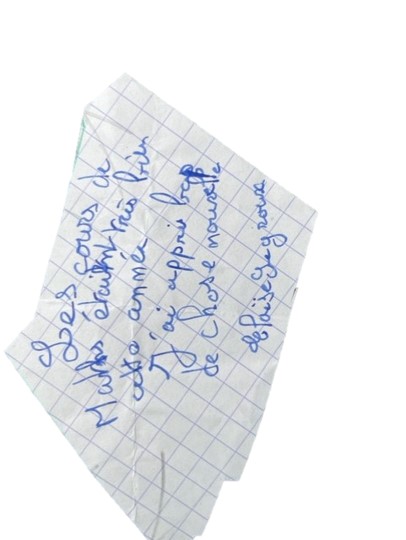 Les cours de
Maths étaient très bien
cette année
J'ai appris bcp
de chose nouvelle